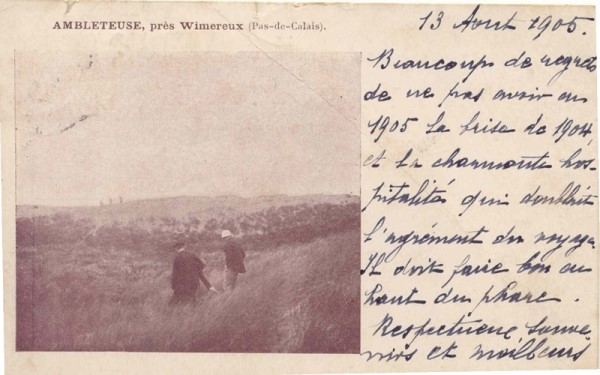 AMBLETEUSE, près Wimereux (Pas-de-Calais).
13 Aout 1905.
Beaucoup de regrets
de ne pas avoir eu
1905 la brise de 1904
et la charmante hos-
pitalité qui doublait
l'agrément du voyage.
Il doit faire bon au
haut du phare.
Respectueux souve-
nirs et meilleurs